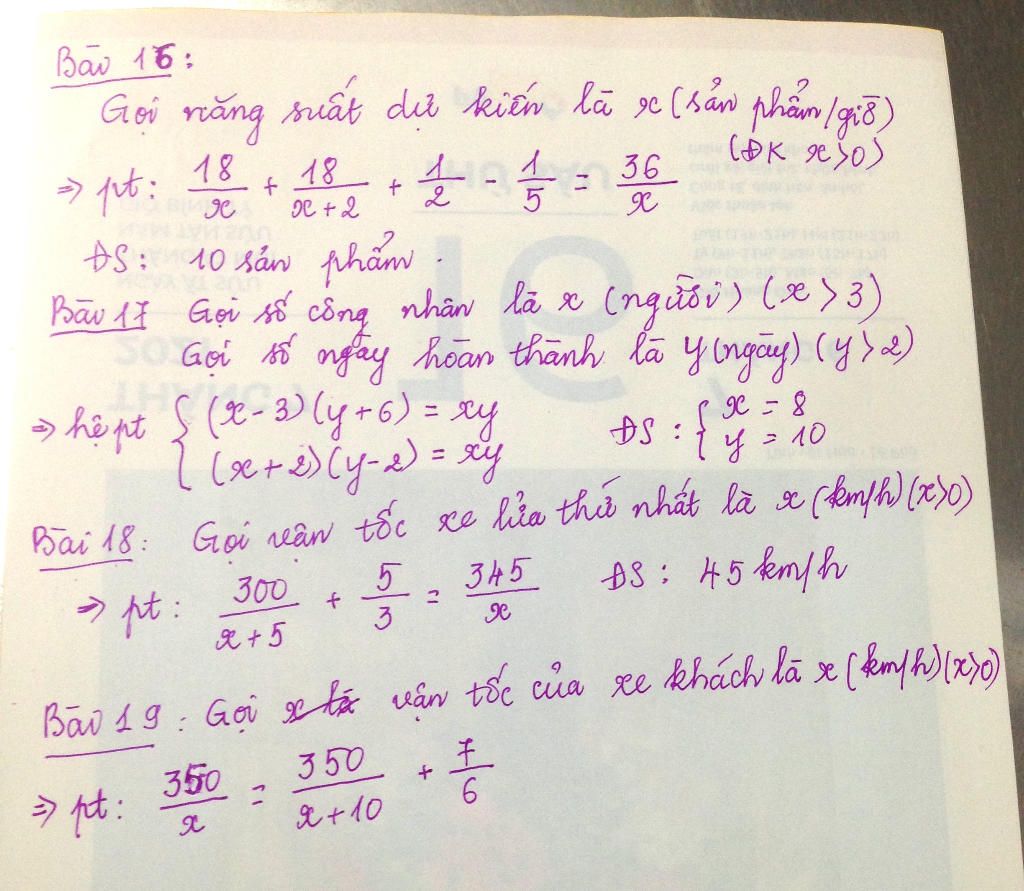 Bài 16:
Gọi năng suất dự kiến là x (sản phẩm/giờ)
(ĐK x>0)
⇒ pt: 18/x + 18/(x+2) + 1/2 - 1/5 = 36/x
ĐS: 10 sản phẩm.
Bài 17 Gọi số công nhân là x (người) (x > 3)
Gọi số ngày hoàn thành là y (ngày) (y > 2)
⇒ hệ pt { (x-3)(y+6) = xy
(x+2)(y-2) = xy
ĐS: { x = 8
y = 10
Bài 18: Gọi vận tốc xe lửa thứ nhất là x (km/h) (x>0)
⇒ pt: 300/(x+5) + 5/3 = 345/x ĐS: 45 km/h
Bài 19: Gọi x là vận tốc của xe khách là x (km/h) (x>0)
⇒ pt: 350/x = 350/(x+10) + 7/6
THỨ SÁU
16